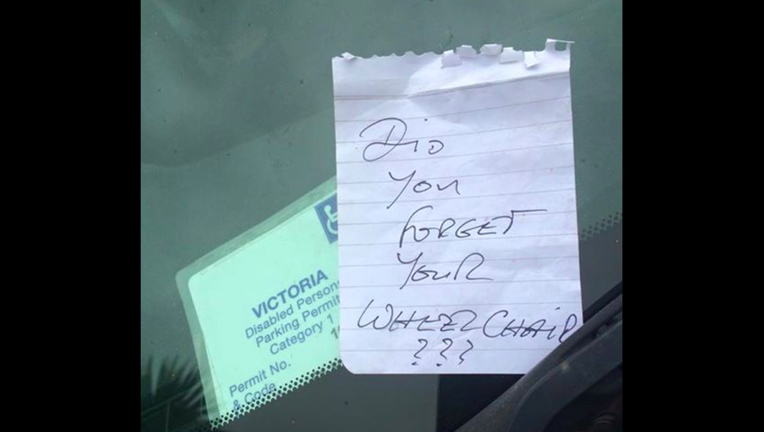 DID
YOU
FORGET
YOUR
WHEEL CHAIR
???
VICTORIA
Disabled Persons
Parking Permit
Category 1
Permit No.
& Code